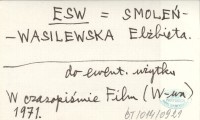 ESW = SMOLEŃ-
-WASILEWSKA Elżbieta.
do ewent. użytku
W czasopiśmie Film (W-wa)
1971.
BT/1014/0921